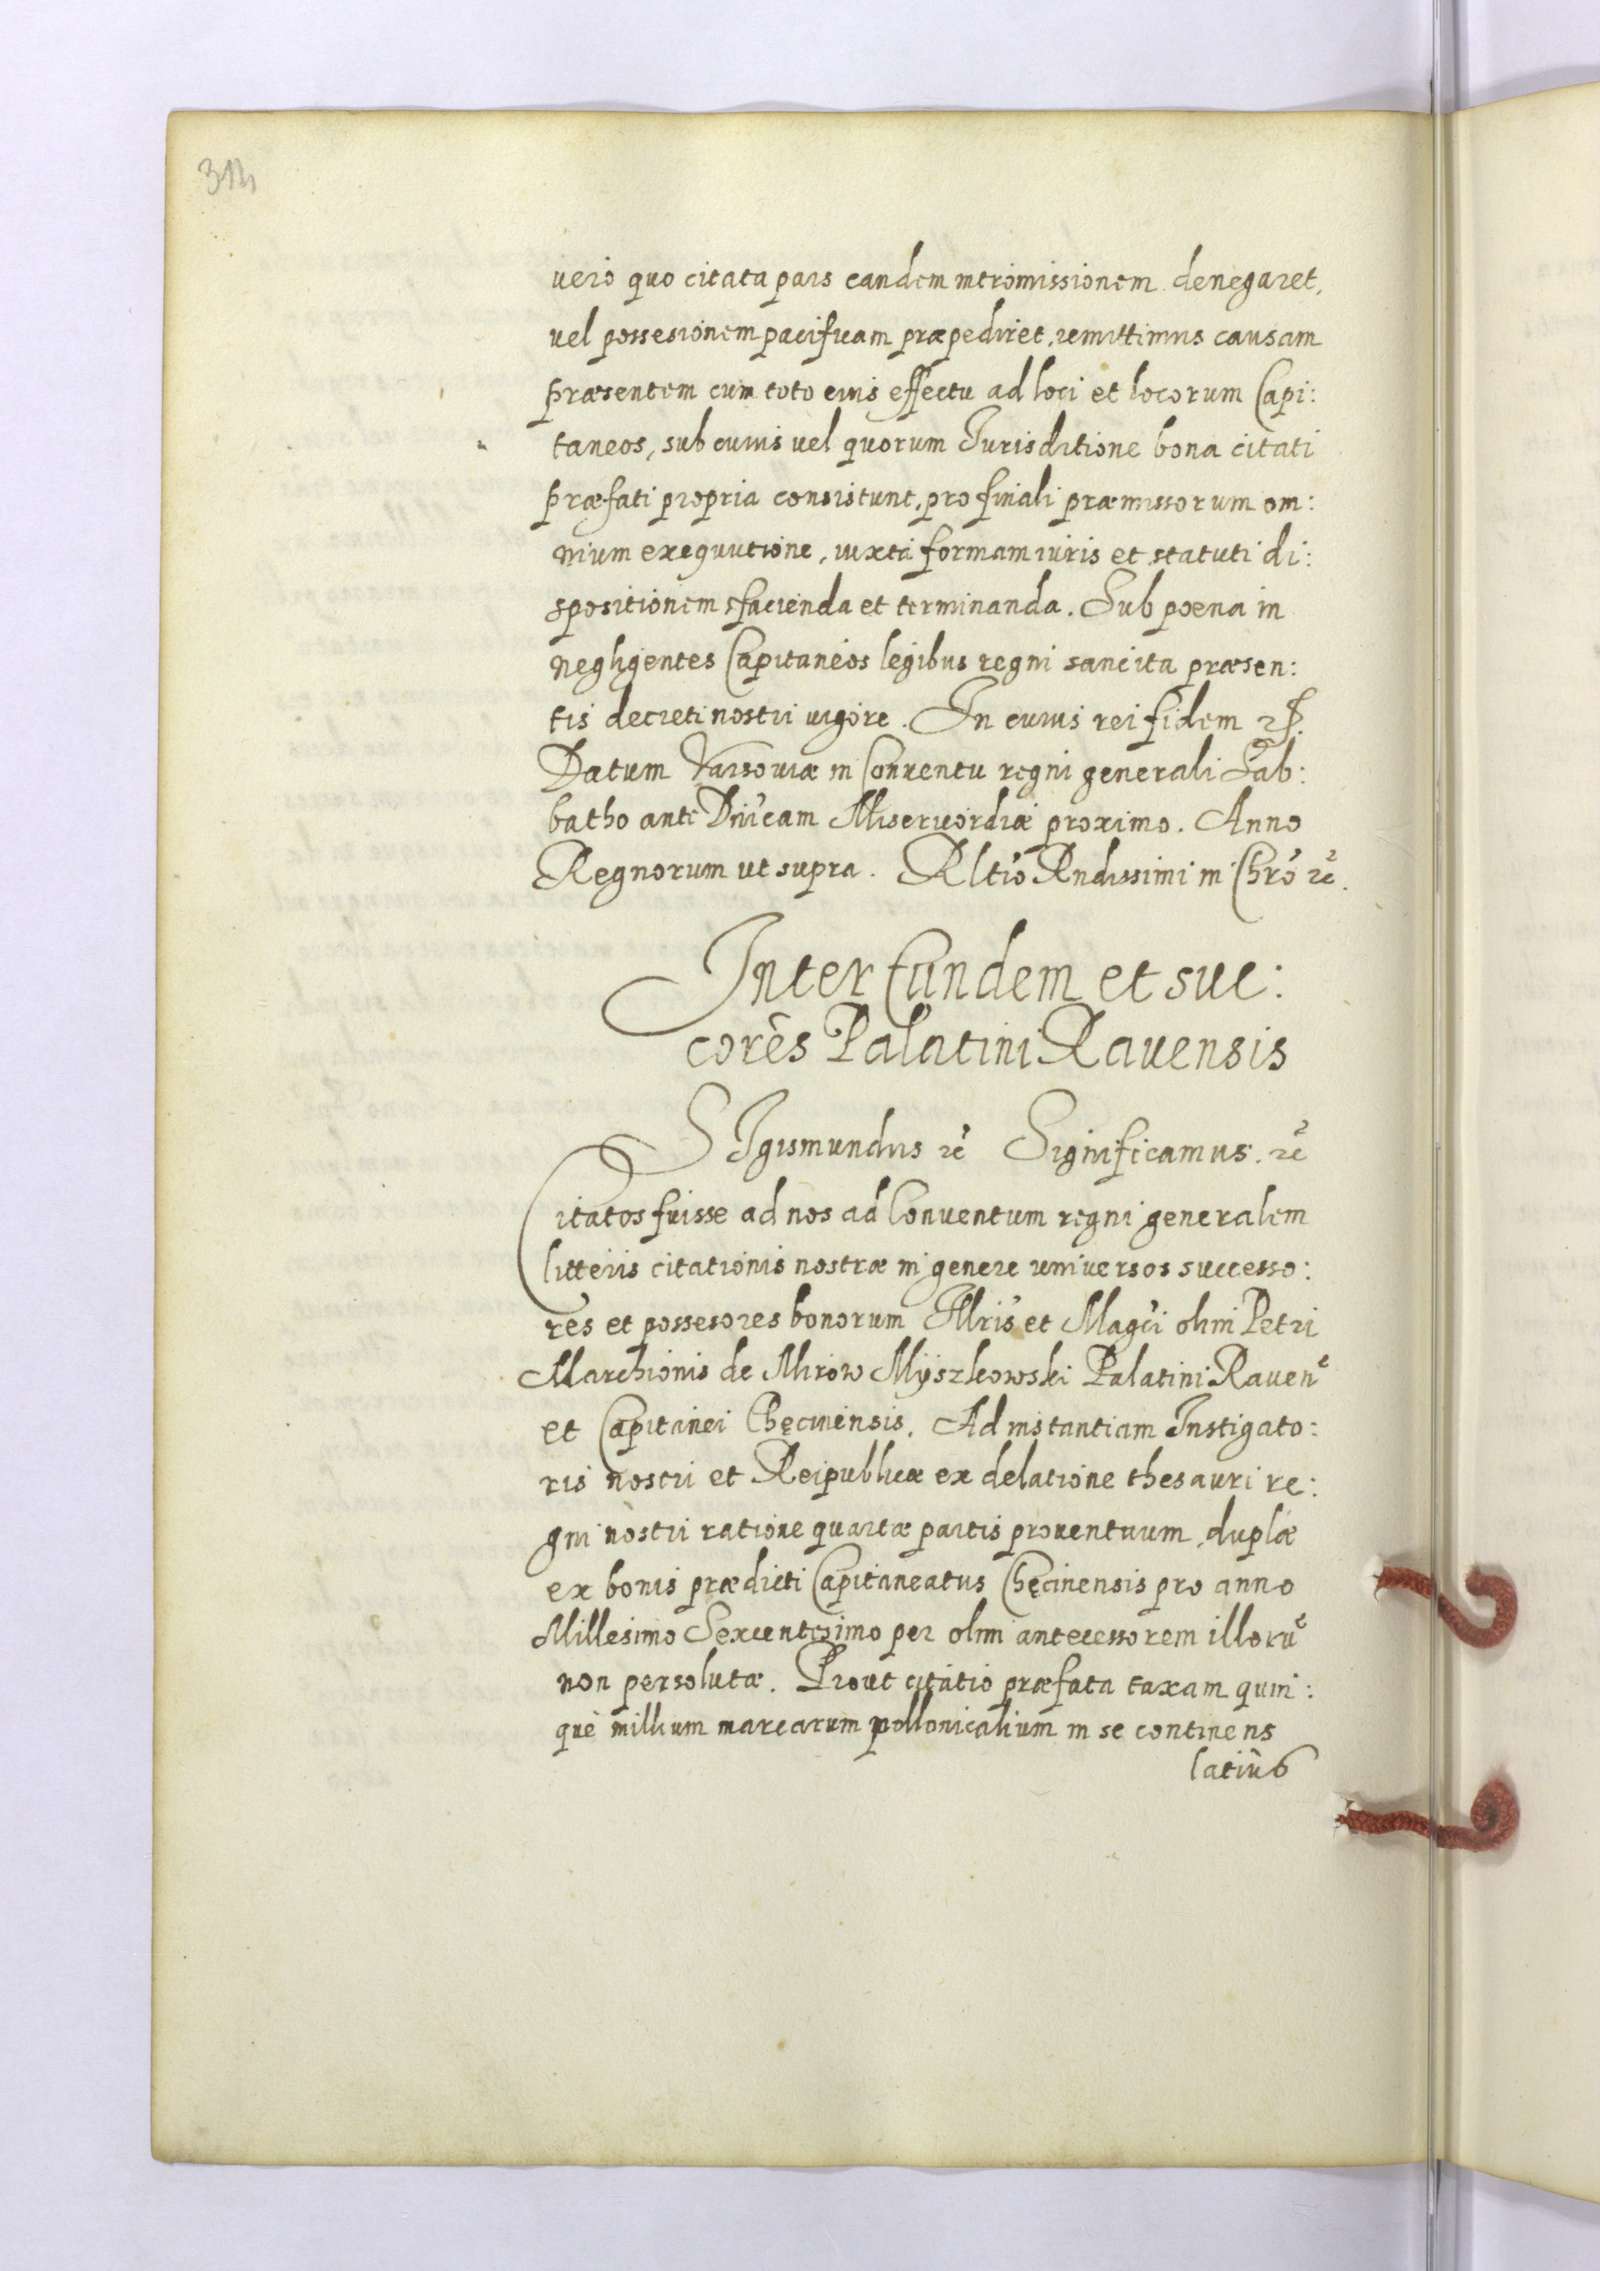 314
vero quo citata pars eandem intromissionem denegaret,
vel possesionem pacificam præpediret, remittimus causam
præsentem cum toto eius effectu ad loci et locorum Capi:
taneos, sub cuius vel quorum Iurisditione bona citati
præfati propria consistunt, pro finali præmissorum om:
nium exequutione, iuxta formam iuris et statuti di:
spositionem facienda et terminanda. Sub poena in
negligentes Capitaneos legibus regni sancita præsen:
tis decreti nostri vigore. In cuius rei fidem
Datum Varsoviæ in Conventu regni generali Sab:
batho ante Dnicam Misericordiæ proximo. Anno
Regnorum ut supra. Rltio Rndissimi in Chro rc.
Inter Eundem et suc:
cores Palatini Ravensis
SIgismundus rc Significamus. rc
Citatos fuisse ad nos ad Conventum regni generalem
litteris citationis nostræ in genere universos successo:
res et possesores bonorum Illris et Magci olim Petri
Marchionis de Mirow Myszkowski Palatini Raven
et Capitanei Chęcinensis. Ad instantiam Instigato:
ris nostri et Reipublicæ ex delatione thesauri re:
gni nostri ratione quartæ partis proventuum, duplæ
ex bonis prædicti Capitaneatus Chęcinensis pro anno
Millesimo Sexcentesimo per olim antecessorem illorũ
non persolutæ. Prout citatio præfata taxam quin:
què millium marcarum pollonicalium in se continens
latiùs